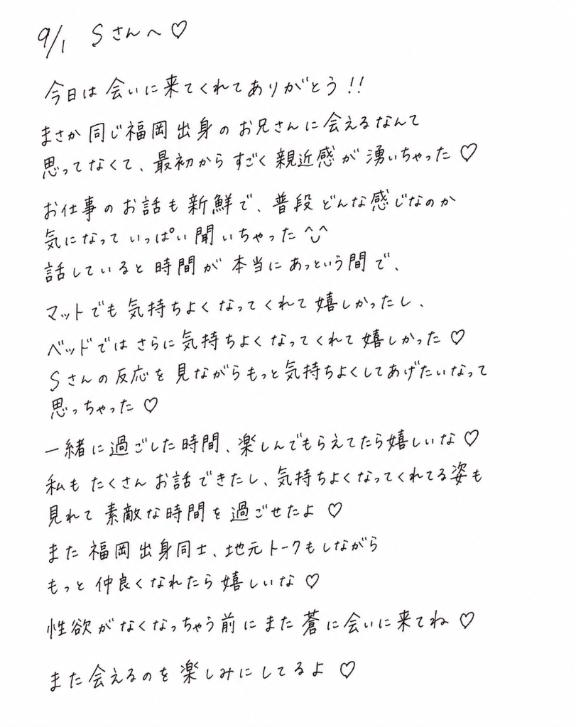 9/1 Sさんへ♡
今日は会いに来てくれてありがとう!!
まさか同じ福岡出身のお兄さんに会えるなんて
思ってなくて、最初からすごく親近感が湧いちゃった♡
お仕事のお話も新鮮で、普段どんな感じなのか
気になっていっぱい聞いちゃった^^
話していると時間が本当にあっという間で、
マットでも気持ちよくなってくれて嬉しかったし、
ベッドではさらに気持ちよくなってくれて嬉しかった♡
Sさんの反応を見ながらもっと気持ちよくしてあげたいなって
思っちゃった♡
一緒に過ごした時間、楽しんでもらえてたら嬉しいな♡
私もたくさんお話できたし、気持ちよくなってくれてる姿も
見れて素敵な時間を過ごせたよ♡
また福岡出身同士、地元トークもしながら
もっと仲良くなれたら嬉しいな♡
性欲がなくなっちゃう前にまた蒼に会いに来てね♡
また会えるのを楽しみにしてるよ♡